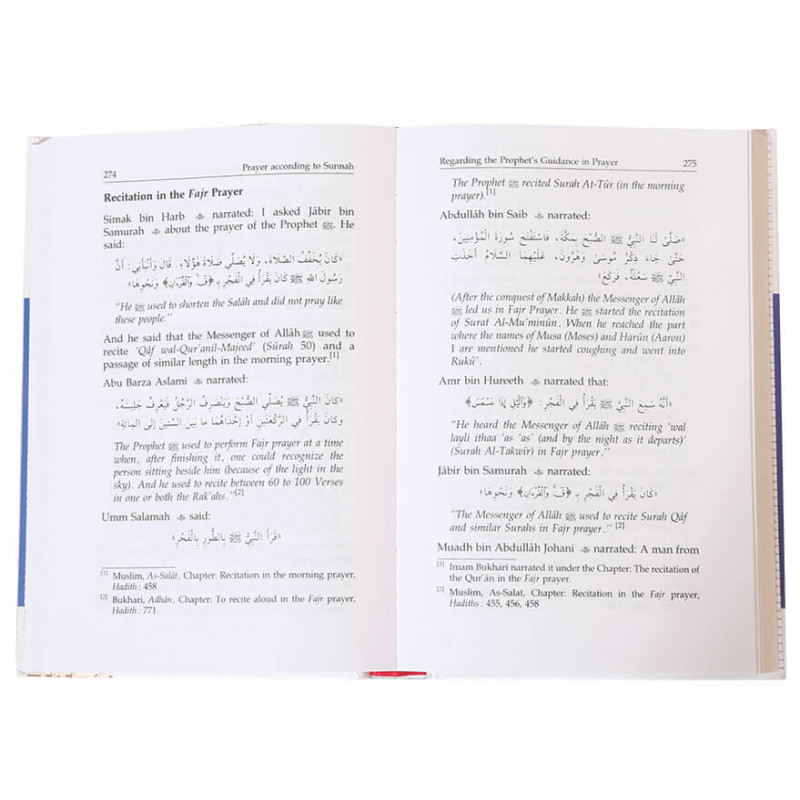 274 Prayer according to Sunnah
Recitation in the Fajr Prayer
Simak bin Harb narrated: I asked Jâbir bin
Samurah about the prayer of the Prophet ﷺ. He
said:
«كَانَ يُخَفِّفُ الصَّلَاةَ، وَلَا يُصَلِّي صَلَاةَ هَؤُلَاءِ. قَالَ وَأَنْبَأَنِي: أَنَّ
رَسُولَ اللهِ ﷺ كَانَ يَقْرَأُ فِي الْفَجْرِ بِـ ﴿قَ وَالْقُرْءَانِ﴾ وَنَحْوِهَا»
“He ﷺ used to shorten the Salâh and did not pray like
these people.”
And he said that the Messenger of Allâh ﷺ used to
recite ‘Qâf wal-Qur’anil-Majeed’ (Sûrah 50) and a
passage of similar length in the morning prayer.[1]
Abu Barza Aslami narrated:
«كَانَ النَّبِيُّ ﷺ يُصَلِّي الصُّبْحَ وَيَنْصَرِفُ الرَّجُلُ فَيَعْرِفُ جَلِيسَهُ،
وكانَ يَقْرَأُ فِي الرَّكْعَتَيْنِ أَوْ إِحْدَاهُمَا مَا بَيْنَ السِّتِّينَ إِلَى المِائَةِ»
The Prophet ﷺ used to perform Fajr prayer at a time
when, after finishing it, one could recognize the
person sitting beside him (because of the light in the
sky). And he used to recite between 60 to 100 Verses
in one or both the Rak'ahs.”[2]
Umm Salamah said:
«قَرَأَ النَّبِيُّ ﷺ بِالطُّورِ بِالْفَجْرِ»
[1] Muslim, As-Salât, Chapter: Recitation in the morning prayer,
Hadith: 458
[2] Bukhari, Adhân, Chapter: To recite aloud in the Fajr prayer,
Hadith: 771
Regarding the Prophet's Guidance in Prayer 275
The Prophet ﷺ recited Surah At-Tûr (in the morning
prayer).[1]
Abdullâh bin Saib narrated:
«صَلَّى لَنَا النَّبِيُّ ﷺ الصُّبْحَ بِمَكَّةَ، فَاسْتَفْتَحَ سُورَةَ الْمُؤْمِنِينَ،
حَتَّى جَاءَ ذِكْرُ مُوسَى وَهٰرُونَ، عَلَيْهِمَا السَّلَامُ أَخَذَتِ
النَّبِيَّ ﷺ سَعْلَةٌ، فَرَكَعَ»
(After the conquest of Makkah) the Messenger of Allâh
ﷺ led us in Fajr Prayer. He ﷺ started the recitation
of Surat Al-Mu'minûn. When he reached the part
where the names of Musa (Moses) and Harûn (Aaron)
I are mentioned he started coughing and went into
Rukû'.
Amr bin Hureeth narrated that:
«أَنَّهُ سَمِعَ النَّبِيَّ ﷺ يَقْرَأُ فِي الْفَجْرِ: ﴿وَالَّيْلِ إِذَا عَسْعَسَ﴾
“He heard the Messenger of Allâh ﷺ reciting ‘wal
layli ithaa ‘as ‘as’ (and by the night as it departs)’
(Surah Al-Takwîr) in Fajr prayer.”
Jâbir bin Samurah narrated:
«كَانَ يَقْرَأُ فِي الْفَجْرِ بِـ ﴿قَ وَالْقُرْءَانِ﴾ وَنَحْوِهَا»
“The Messenger of Allâh ﷺ used to recite Surah Qâf
and similar Surahs in Fajr prayer.” [2]
Muadh bin Abdullâh Johani narrated: A man from
[1] Imam Bukhari narrated it under the Chapter: The recitation of
the Qur'ân in the Fajr prayer.
[2] Muslim, As-Salat, Chapter: Recitation in the Fajr prayer,
Hadiths: 455, 456, 458